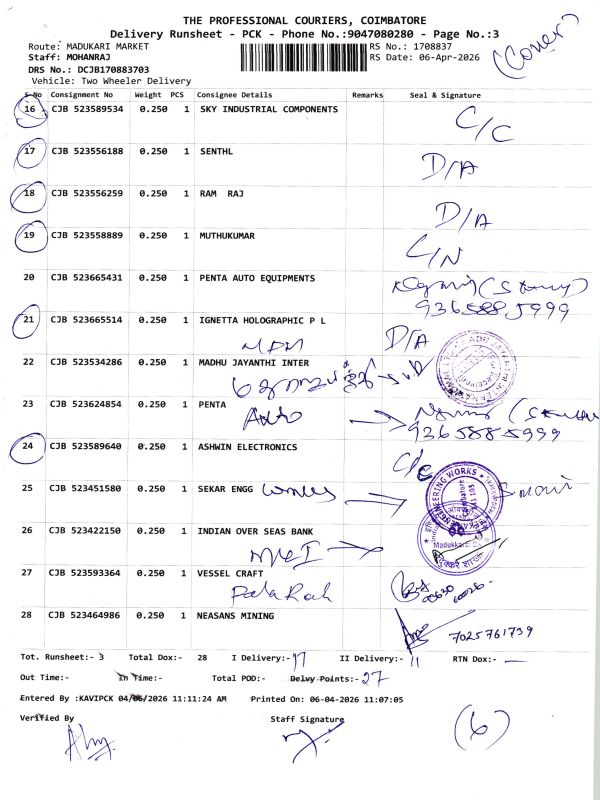 THE PROFESSIONAL COURIERS, COIMBATORE
Delivery Runsheet - PCK - Phone No.:9047080280 - Page No.:3
Route: MADUKARI MARKET RS No.: 1708837
Staff: MOHANRAJ RS Date: 06-Apr-2026
(Cover)
DRS No.: DCJB170883703
Vehicle: Two Wheeler Delivery
S No Consignment No Weight PCS Consignee Details Remarks Seal & Signature
16 CJB 523589534 0.250 1 SKY INDUSTRIAL COMPONENTS C/C
17 CJB 523556188 0.250 1 SENTHL D/A
18 CJB 523556259 0.250 1 RAM RAJ D/A
19 CJB 523558889 0.250 1 MUTHUKUMAR C/N
20 CJB 523665431 0.250 1 PENTA AUTO EQUIPMENTS
9365885999
21 CJB 523665514 0.250 1 IGNETTA HOLOGRAPHIC P L D/A
22 CJB 523534286 0.250 1 MADHU JAYANTHI INTER
23 CJB 523624854 0.250 1 PENTA
Auto 9365885999
24 CJB 523589640 0.250 1 ASHWIN ELECTRONICS C/C
25 CJB 523451580 0.250 1 SEKAR ENGG
ENGINEERING WORKS
26 CJB 523422150 0.250 1 INDIAN OVER SEAS BANK
27 CJB 523593364 0.250 1 VESSEL CRAFT
28 CJB 523464986 0.250 1 NEASANS MINING
7025761739
Tot. Runsheet:- 3 Total Dox:- 28 I Delivery:- 17 II Delivery:- 11 RTN Dox:- —
Out Time:- In Time:- Total POD:- Delvy Points:- 27
Entered By :KAVIPCK 04/06/2026 11:11:24 AM Printed On: 06-04-2026 11:07:05
Verified By Staff Signature
(6)